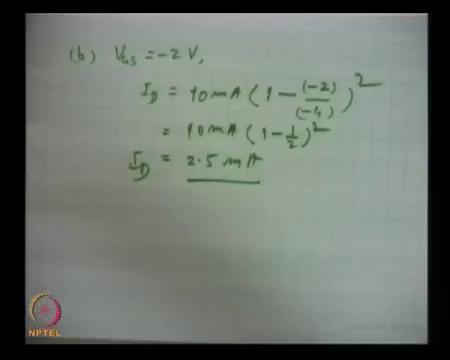 (b) V_GS = -2 V,
I_D = 10 mA ( 1 - (-2)/(-4) )^2
= 10 mA ( 1 - 1/2 )^2
I_D = 2.5 mA
NPTEL